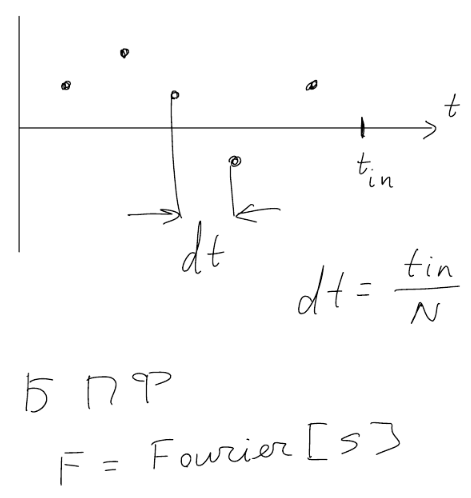 t
t_in
dt
dt = t_in / N
БПФ
F = Fourier[s]